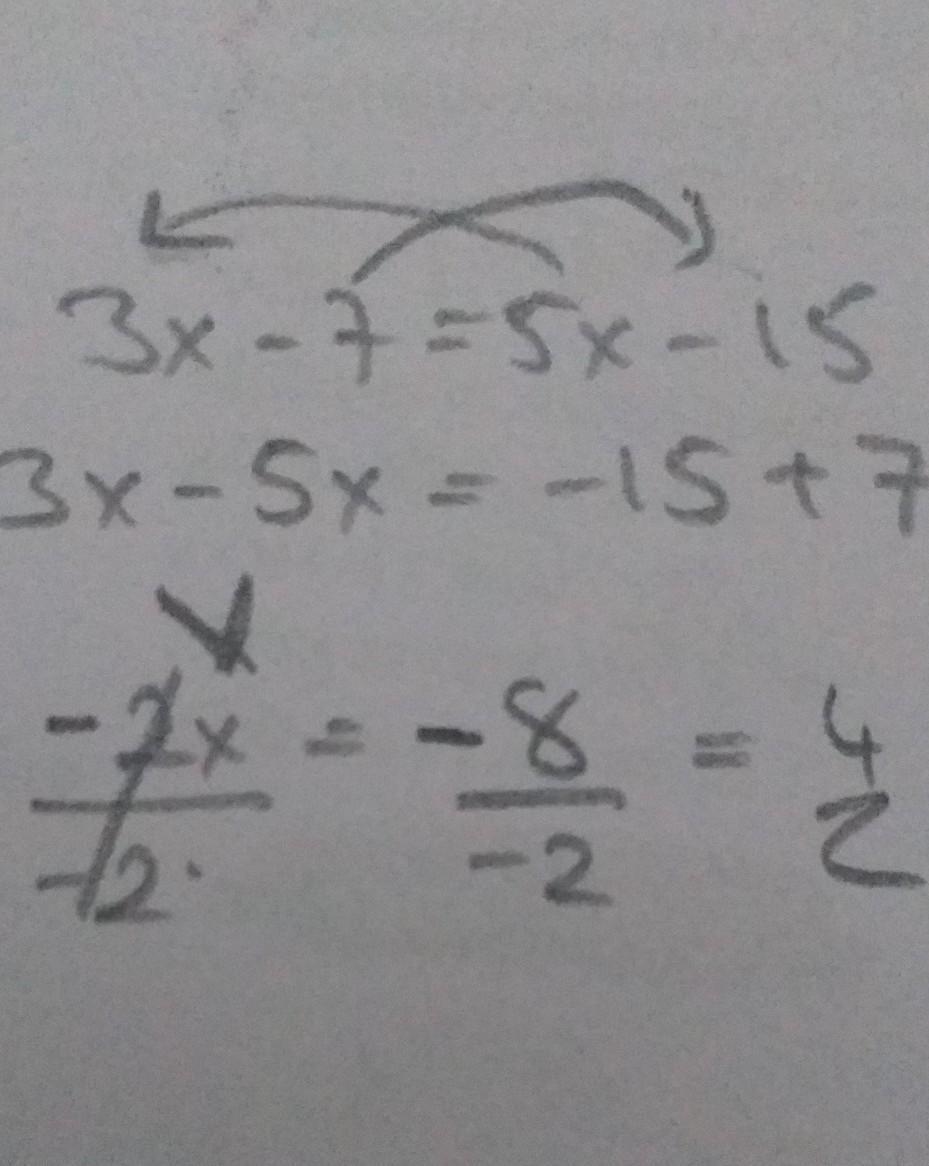 3x - 7 = 5x - 15
3x - 5x = -15 + 7
-2x/-2 = -8/-2 = 4